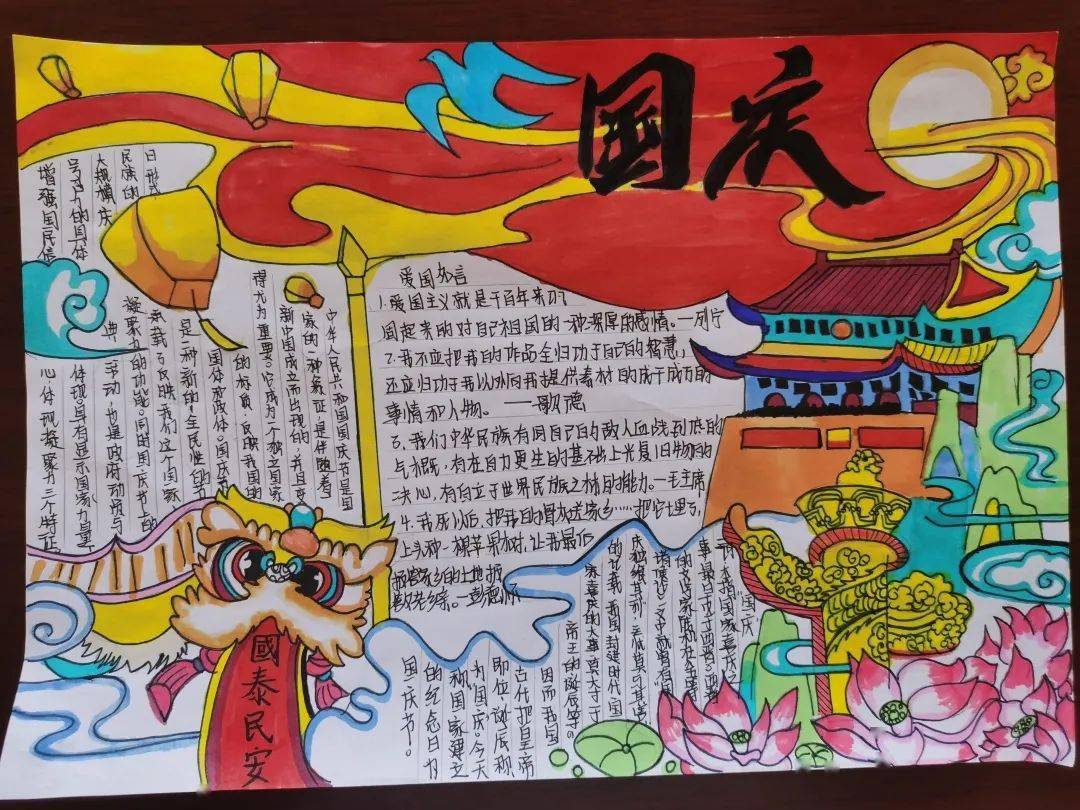 国庆
中华人民共和国国庆节是国
家的一种象征,是伴随着
新中国成立而出现的,并且变
得尤为重要。它成为一个独立国家
的标负,反映我国的
国体和政体。国庆节
是一种新的、全民性的节
日形式
承载了反映我们这个国家
民族的
凝聚力的功能。同时国庆节上的
大规模庆
典活动,也是政府动员与
号召力的具体
体现。具有显示国家力量、
增强国民信
心,体现凝聚力三个特征
爱国名言
1.爱国主义就是千百年来
固起来的对自己祖国的一种深厚的感情。—列宁
2.我不应把我的作品全归功于自己的智慧,
还应归功于我以外向我提供素材的成千成万的
事情和人物。——歌德
3、我们中华民族有同自己的敌人血战到底的
气概,有在自力更生的基础上光复旧物的
决心,有自立于世界民族之林的能力。—毛主席
4.我死以后,把我的骨灰送家乡……把它埋了,
上头种一棵苹果树,让我最后
报答家乡的土地,报
家乡。—彭德怀
"国庆"
本指国家喜庆之
事,最早见于西晋。西晋
的文学家陆机在
诸侯论》文中就曾有国
庆独飨其利,主忧莫与其害
的记载、我国封建时代、国
家喜庆的大事,莫大于
帝王的诞辰等。
因而我国
古代把皇帝
即位、诞辰称
为"国庆"。今天
称国家建立
的纪念日为
国庆节!
國泰民安